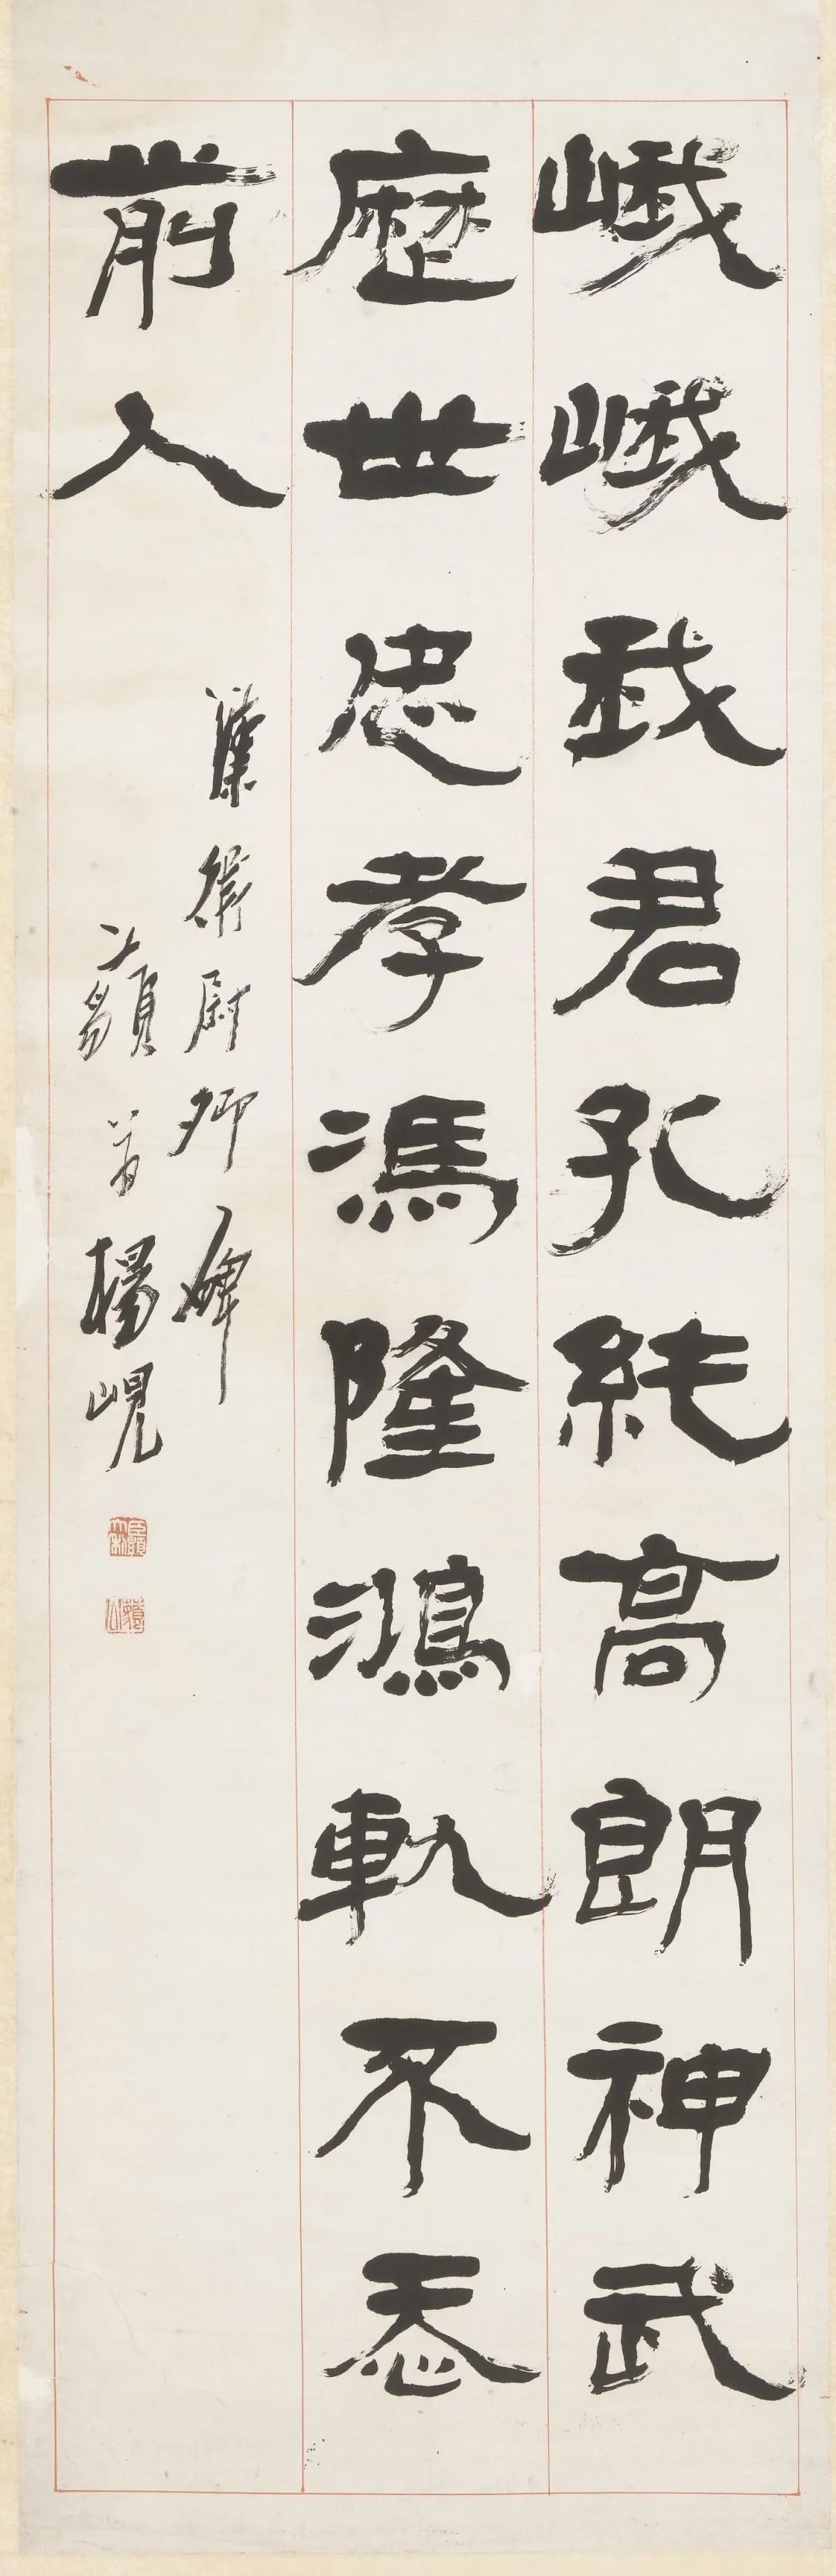 峨峨我君孔純高朗神武
歷世忠孝馮隆鴻軌不忝
前人
漢衛尉卿碑
藐翁楊峴